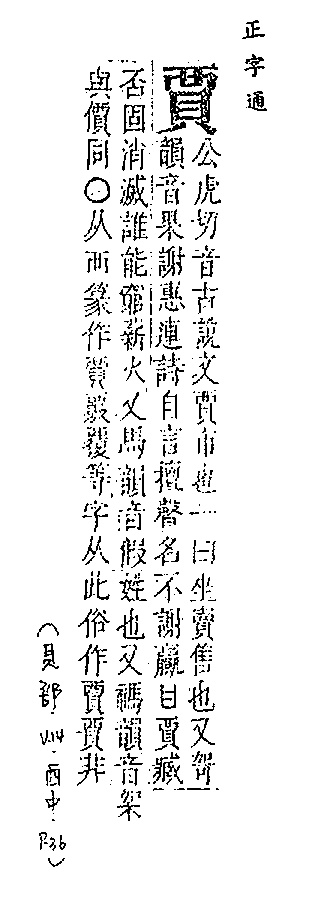 正字通
賈
公虎切音古說文賈市也一曰坐賣售也又哿
韻音果謝惠連詩自言擅聲名不謝嬴日賈臧
否固消滅誰能窮薪火又馬韻音假姓也又禡韻音架
與價同○从襾篆作賈覈覆等字从此俗作賈賈非
(貝部.V.14.酉中.P.36)